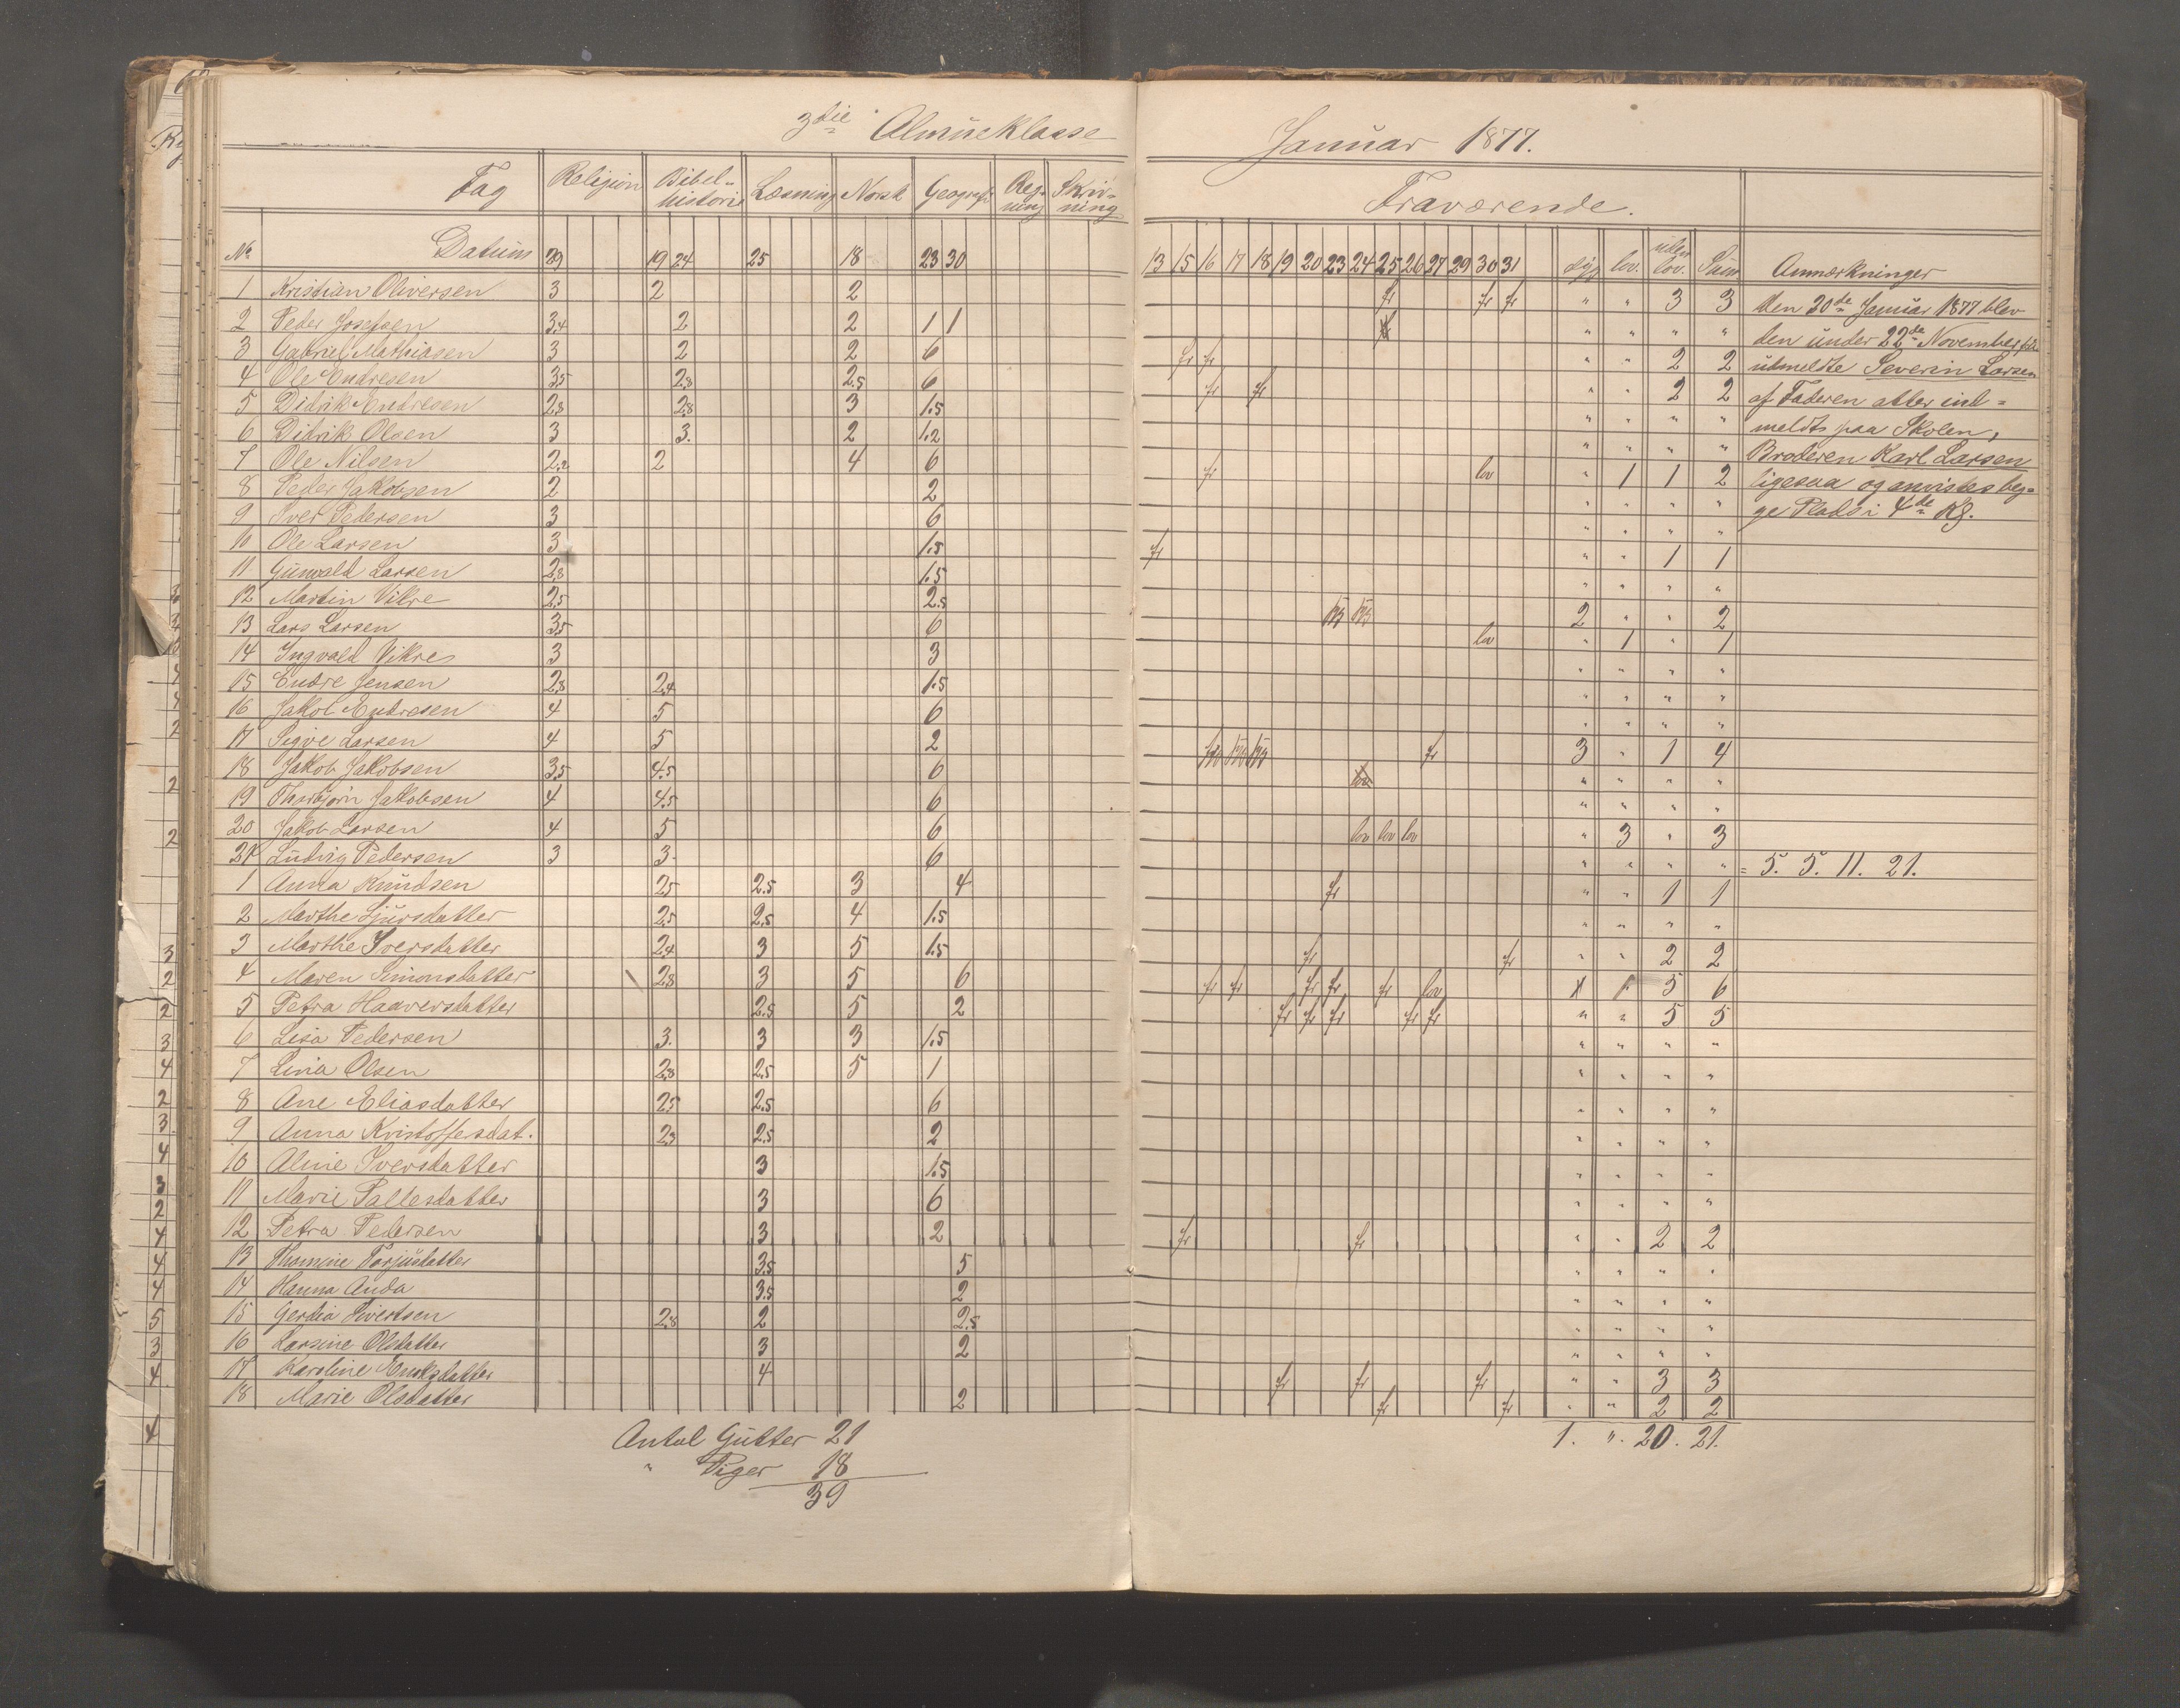 3die Almueklasse
Januar 1877.
Fag Religion Bibel- historie Læsning Norsk Geografi Reg- ning Skriv- ning
Fraværende.
No. Datum 29 19 24 25 18 23 30
13 15 16 17 18 19 20 23 24 25 26 27 29 30 31 syg lov. uden lov. Sum Anmærkninger
1 Kristian Oliversen 3 2 2 fr fr fr " " 3 3
2 Peder Josefsen 3.4 2 2 1 1 " " " "
3 Gabriel Mathiasen 3 2 2 6 fr fr " " 2 2
4 Ole Endresen 3.5 2.8 2.5 6 fr fr " " 2 2
5 Didrik Endresen 2.8 2.8 3 1.5 " " " "
6 Didrik Olsen 3 3. 2 1.2 " " " "
7 Ole Nilsen 2.2 2 4 6 fr lov " 1 1 2
8 Peder Jakobsen 2 2 " " " "
9 Iver Pedersen 3 6 " " " "
10 Ole Larsen 3 1.5 fr " " 1 1
11 Gunvald Larsen 2.8 1.5 " " " "
12 Martin Vikre 2.5 2.5 2 " " 2
13 Lars Larsen 3.5 6 lov " 1 " 1
14 Ingvald Vikre 3 3 " " " "
15 Endre Jensen 2.8 2.4 1.5 " " " "
16 Jakob Endresen 4 5 6 " " " "
17 Sigve Larsen 4 5 2 fr 3 " 1 4
18 Jakob Jakobsen 3.5 4.5 6 " " " "
19 Thorbjørn Jakobsen 4 4.5 6 " " " "
20 Jakob Larsen 4 5 6 lov lov lov " 3 " 3
21 Ludvig Pedersen 3 3. 6 " " " " = 5. 5. 11. 21.
1 Anna Knudsen 2.5 2.5 3 4 fr " " 1 1
2 Marthe Sjursdatter 2.5 2.5 4 1.5 " " " "
3 Marthe Iversdatter 2.4 3 5 1.5 fr fr " " 2 2
4 Maren Simonsdatter 2.8 3 5 6 fr fr fr fr fr lov 1 5 6
5 Petra Haaversdatter 2.5 5 2 fr fr fr fr fr " " 5 5
6 Lisa Pedersen 3. 3 3 1.5 " " " "
7 Lina Olsen 2.8 2.5 5 1 " " " "
8 Ane Eliasdatter 2.5 2.5 6 " " " "
9 Anna Kristoffersdat. 2.3 2.5 2 " " " "
10 Aline Iversdatter 3 1.5 " " " "
11 Marie Pallesdatter 3 6 " " " "
12 Petra Pedersen 3 2 fr fr " " 2 2
13 Thomine Torjusdatter 3.5 5 " " " "
14 Hanna Auda 3.5 2 " " " "
15 Gerdia Sivertsen 2.8 2 2.5 " " " "
16 Larsine Olsdatter 3 2 " " " "
17 Karoline 4 fr fr fr " " 3 3
18 Marie Olsdatter 2 fr fr " " 2 2
1. ". 20. 21.
Antal Gutter 21
" Piger 18
39
den 30de Januar 1877 blev
den under 22de November
udmeldte Severin Larsen
af Faderen atter ind=
meldt paa Skolen,
Broderen Karl Larsen
ligesaa og anvistes beg-
ge Plads i 4de Kl.